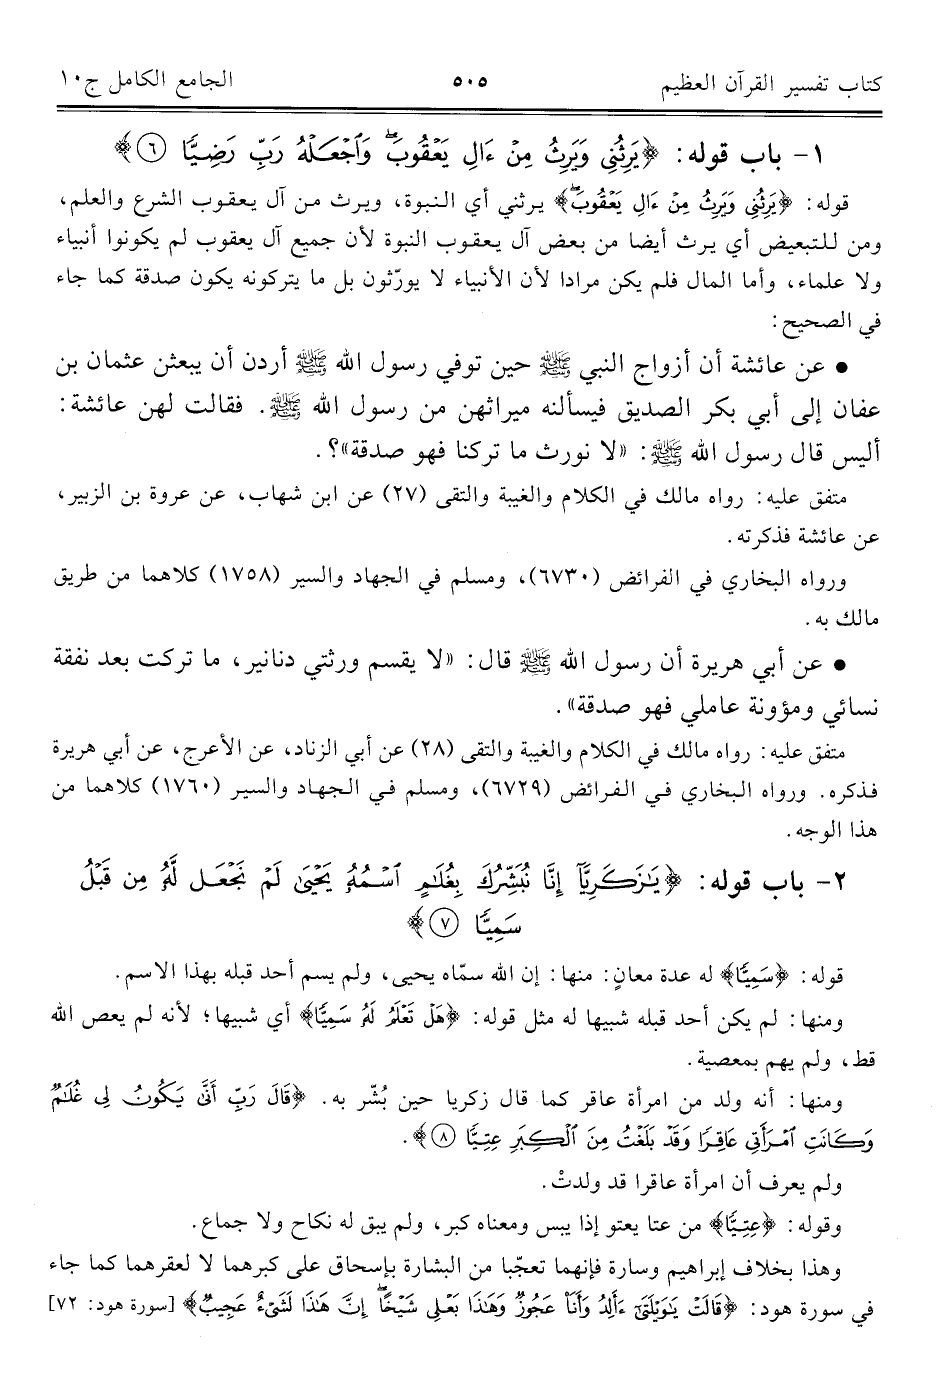 كتاب تفسير القرآن العظيم ٥٠٥ الجامع الكامل ج١٠
١- باب قوله: ﴿يَرِثُنِي وَيَرِثُ مِنْ ءَالِ يَعْقُوبَ ۖ وَاجْعَلْهُ رَبِّ رَضِيًّا ٦﴾
قوله: ﴿يَرِثُنِي وَيَرِثُ مِنْ ءَالِ يَعْقُوبَ ۖ﴾ يرثني أي النبوة، ويرث من آل يعقوب الشرع والعلم،
ومن للتبعيض أي يرث أيضا من بعض آل يعقوب النبوة لأن جميع آل يعقوب لم يكونوا أنبياء
ولا علماء، وأما المال فلم يكن مرادا لأن الأنبياء لا يورّثون بل ما يتركونه يكون صدقة كما جاء
في الصحيح:
• عن عائشة أن أزواج النبي ﷺ حين توفي رسول الله ﷺ أردن أن يبعثن عثمان بن
عفان إلى أبي بكر الصديق فيسألنه ميراثهن من رسول الله ﷺ. فقالت لهن عائشة:
أليس قال رسول الله ﷺ: «لا نورث ما تركنا فهو صدقة»؟.
متفق عليه: رواه مالك في الكلام والغيبة والتقى (٢٧) عن ابن شهاب، عن عروة بن الزبير،
عن عائشة فذكرته.
ورواه البخاري في الفرائض (٦٧٣٠)، ومسلم في الجهاد والسير (١٧٥٨) كلاهما من طريق
مالك به.
• عن أبي هريرة أن رسول الله ﷺ قال: «لا يقسم ورثتي دنانير، ما تركت بعد نفقة
نسائي ومؤونة عاملي فهو صدقة».
متفق عليه: رواه مالك في الكلام والغيبة والتقى (٢٨) عن أبي الزناد، عن الأعرج، عن أبي هريرة
فذكره. ورواه البخاري في الفرائض (٦٧٢٩)، ومسلم في الجهاد والسير (١٧٦٠) كلاهما من
هذا الوجه.
٢- باب قوله: ﴿يَٰزَكَرِيَّآ إِنَّا نُبَشِّرُكَ بِغُلَٰمٍ ٱسْمُهُۥ يَحْيَىٰ لَمْ نَجْعَل لَّهُۥ مِن قَبْلُ
سَمِيًّا ٧﴾
قوله: ﴿سَمِيًّا﴾ له عدة معانٍ: منها: إن الله سمّاه يحيى، ولم يسم أحد قبله بهذا الاسم.
ومنها: لم يكن أحد قبله شبيها له مثل قوله: ﴿هَلْ تَعْلَمُ لَهُۥ سَمِيًّا﴾ أي شبيها؛ لأنه لم يعص الله
قط، ولم يهم بمعصية.
ومنها: أنه ولد من امرأة عاقر كما قال زكريا حين بُشّر به. ﴿قَالَ رَبِّ أَنَّىٰ يَكُونُ لِي غُلَٰمٌ
وَكَانَتِ ٱمْرَأَتِي عَاقِرًا وَقَدْ بَلَغْتُ مِنَ ٱلْكِبَرِ عِتِيًّا ٨﴾.
ولم يعرف أن امرأة عاقرا قد ولدتْ.
وقوله: ﴿عِتِيًّا﴾ من عتا يعتو إذا يبس ومعناه كبر، ولم يبق له نكاح ولا جماع.
وهذا بخلاف إبراهيم وسارة فإنهما تعجّبا من البشارة بإسحاق على كبرهما لا لعقرهما كما جاء
في سورة هود: ﴿قَالَتْ يَٰوَيْلَتَىٰٓ ءَأَلِدُ وَأَنَا۠ عَجُوزٌ وَهَٰذَا بَعْلِي شَيْخًا ۖ إِنَّ هَٰذَا لَشَىْءٌ عَجِيبٌ﴾ [سورة هود: ٧٢]